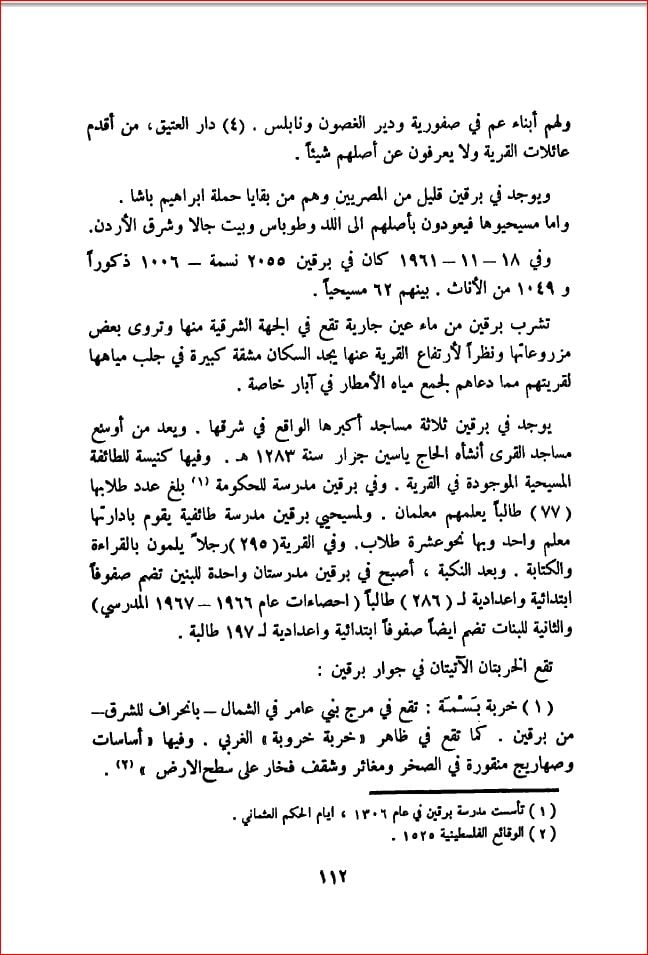 ولهم أبناء عم في صفورية ودير الغصون ونابلس . (٤) دار العتيق، من أقدم
عائلات القرية ولا يعرفون عن أصلهم شيئاً .
ويوجد في برقين قليل من المصريين وهم من بقايا حملة ابراهيم باشا .
واما مسيحيوها فيعودون بأصلهم الى اللد وطوباس وبيت جالا وشرق الأردن.
وفي ١٨ – ١١ – ١٩٦١ كان في برقين ٢٠٥٥ نسمة – ١٠٠٦ ذكوراً
و ١٠٤٩ من الأناث . بينهم ٦٢ مسيحياً .
تشرب برقين من ماء عين جارية تقع في الجهة الشرقية منها وتروى بعض
مزروعاتها ونظراً لأرتفاع القرية عنها يجد السكان مشقة كبيرة في جلب مياهها
لقريتهم مما دعاهم لجمع مياه الأمطار في آبار خاصة .
يوجد في برقين ثلاثة مساجد أكبرها الواقع في شرقها . ويعد من أوسع
مساجد القرى أنشأه الحاج ياسين جزار سنة ١٢٨٣ هـ . وفيها كنيسة للطائفة
المسيحية الموجودة في القرية . وفي برقين مدرسة للحكومة (١) بلغ عدد طلابها
(٧٧) طالباً يعلمهم معلمان . ولمسيحيي برقين مدرسة طائفية يقوم بادارتها
معلم واحد وبها نحو عشرة طلاب. وفي القرية (٢٩٥) رجلاً يلمون بالقراءة
والكتابة . وبعد النكبة ، أصبح في برقين مدرستان واحدة للبنين تضم صفوفاً
ابتدائية واعدادية لـ (٢٨٦) طالباً (احصاءات عام ١٩٦٦ – ١٩٦٧ المدرسي)
والثانية للبنات تضم ايضاً صفوفاً ابتدائية واعدادية لـ ١٩٧ طالبة .
تقع الخربتان الآتيتان في جوار برقين :
(١) خربة بَسْمَة : تقع في مرج بني عامر في الشمال – بانحراف للشرق –
من برقين . كما تقع في ظاهر «خربة خروبة» الغربي . وفيها «أساسات
وصهاريج منقورة في الصخر ومغائر وشقف فخار على سطح الارض » (٢) .
(١) تأسست مدرسة برقين في عام ١٣٠٦ ، ايام الحكم العثماني .
(٢) الوقائع الفلسطينية ١٥٢٥ .
١١٢